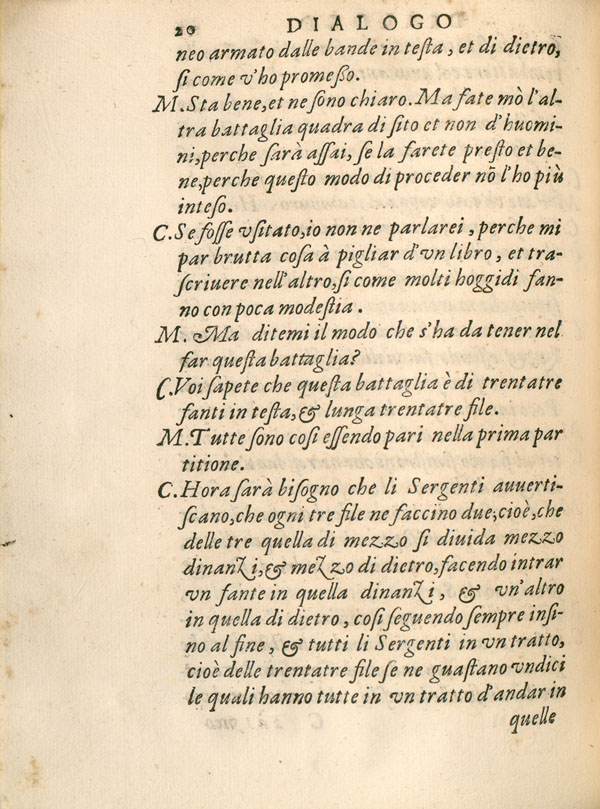 20 DIALOGO
neo armato dalle bande in testa, et di dietro,
si come v'ho promesso.
M. Sta bene, et ne sono chiaro. Ma fate mò l'al-
tra battaglia quadra di sito et non d'huomi-
ni, perche sarà assai, se la farete presto et be-
ne, perche questo modo di proceder nō l'ho più
inteso.
C. Se fosse vsitato, io non ne parlarei, perche mi
par brutta cosa à pigliar d'vn libro, et tra-
scriuere nell'altro, si come molti hoggidi fan-
no con poca modestia.
M. Ma ditemi il modo che s'ha da tener nel
far questa battaglia?
C. Voi sapete che questa battaglia è di trentatre
fanti in testa, & lunga trentatre file.
M. Tutte sono cosi essendo pari nella prima par
titione.
C. Hora sarà bisogno che li Sergenti auuerti-
scano, che ogni tre file ne faccino due; cioè, che
delle tre quella di mezzo si diuida mezzo
dinanzi, & mezzo di dietro, facendo intrar
vn fante in quella dinanzi, & vn'altro
in quella di dietro, cosi seguendo sempre insi-
no al fine, & tutti li Sergenti in vn tratto,
cioè delle trentatre file se ne guastano vndici
le quali hanno tutte in vn tratto d'andar in
quelle